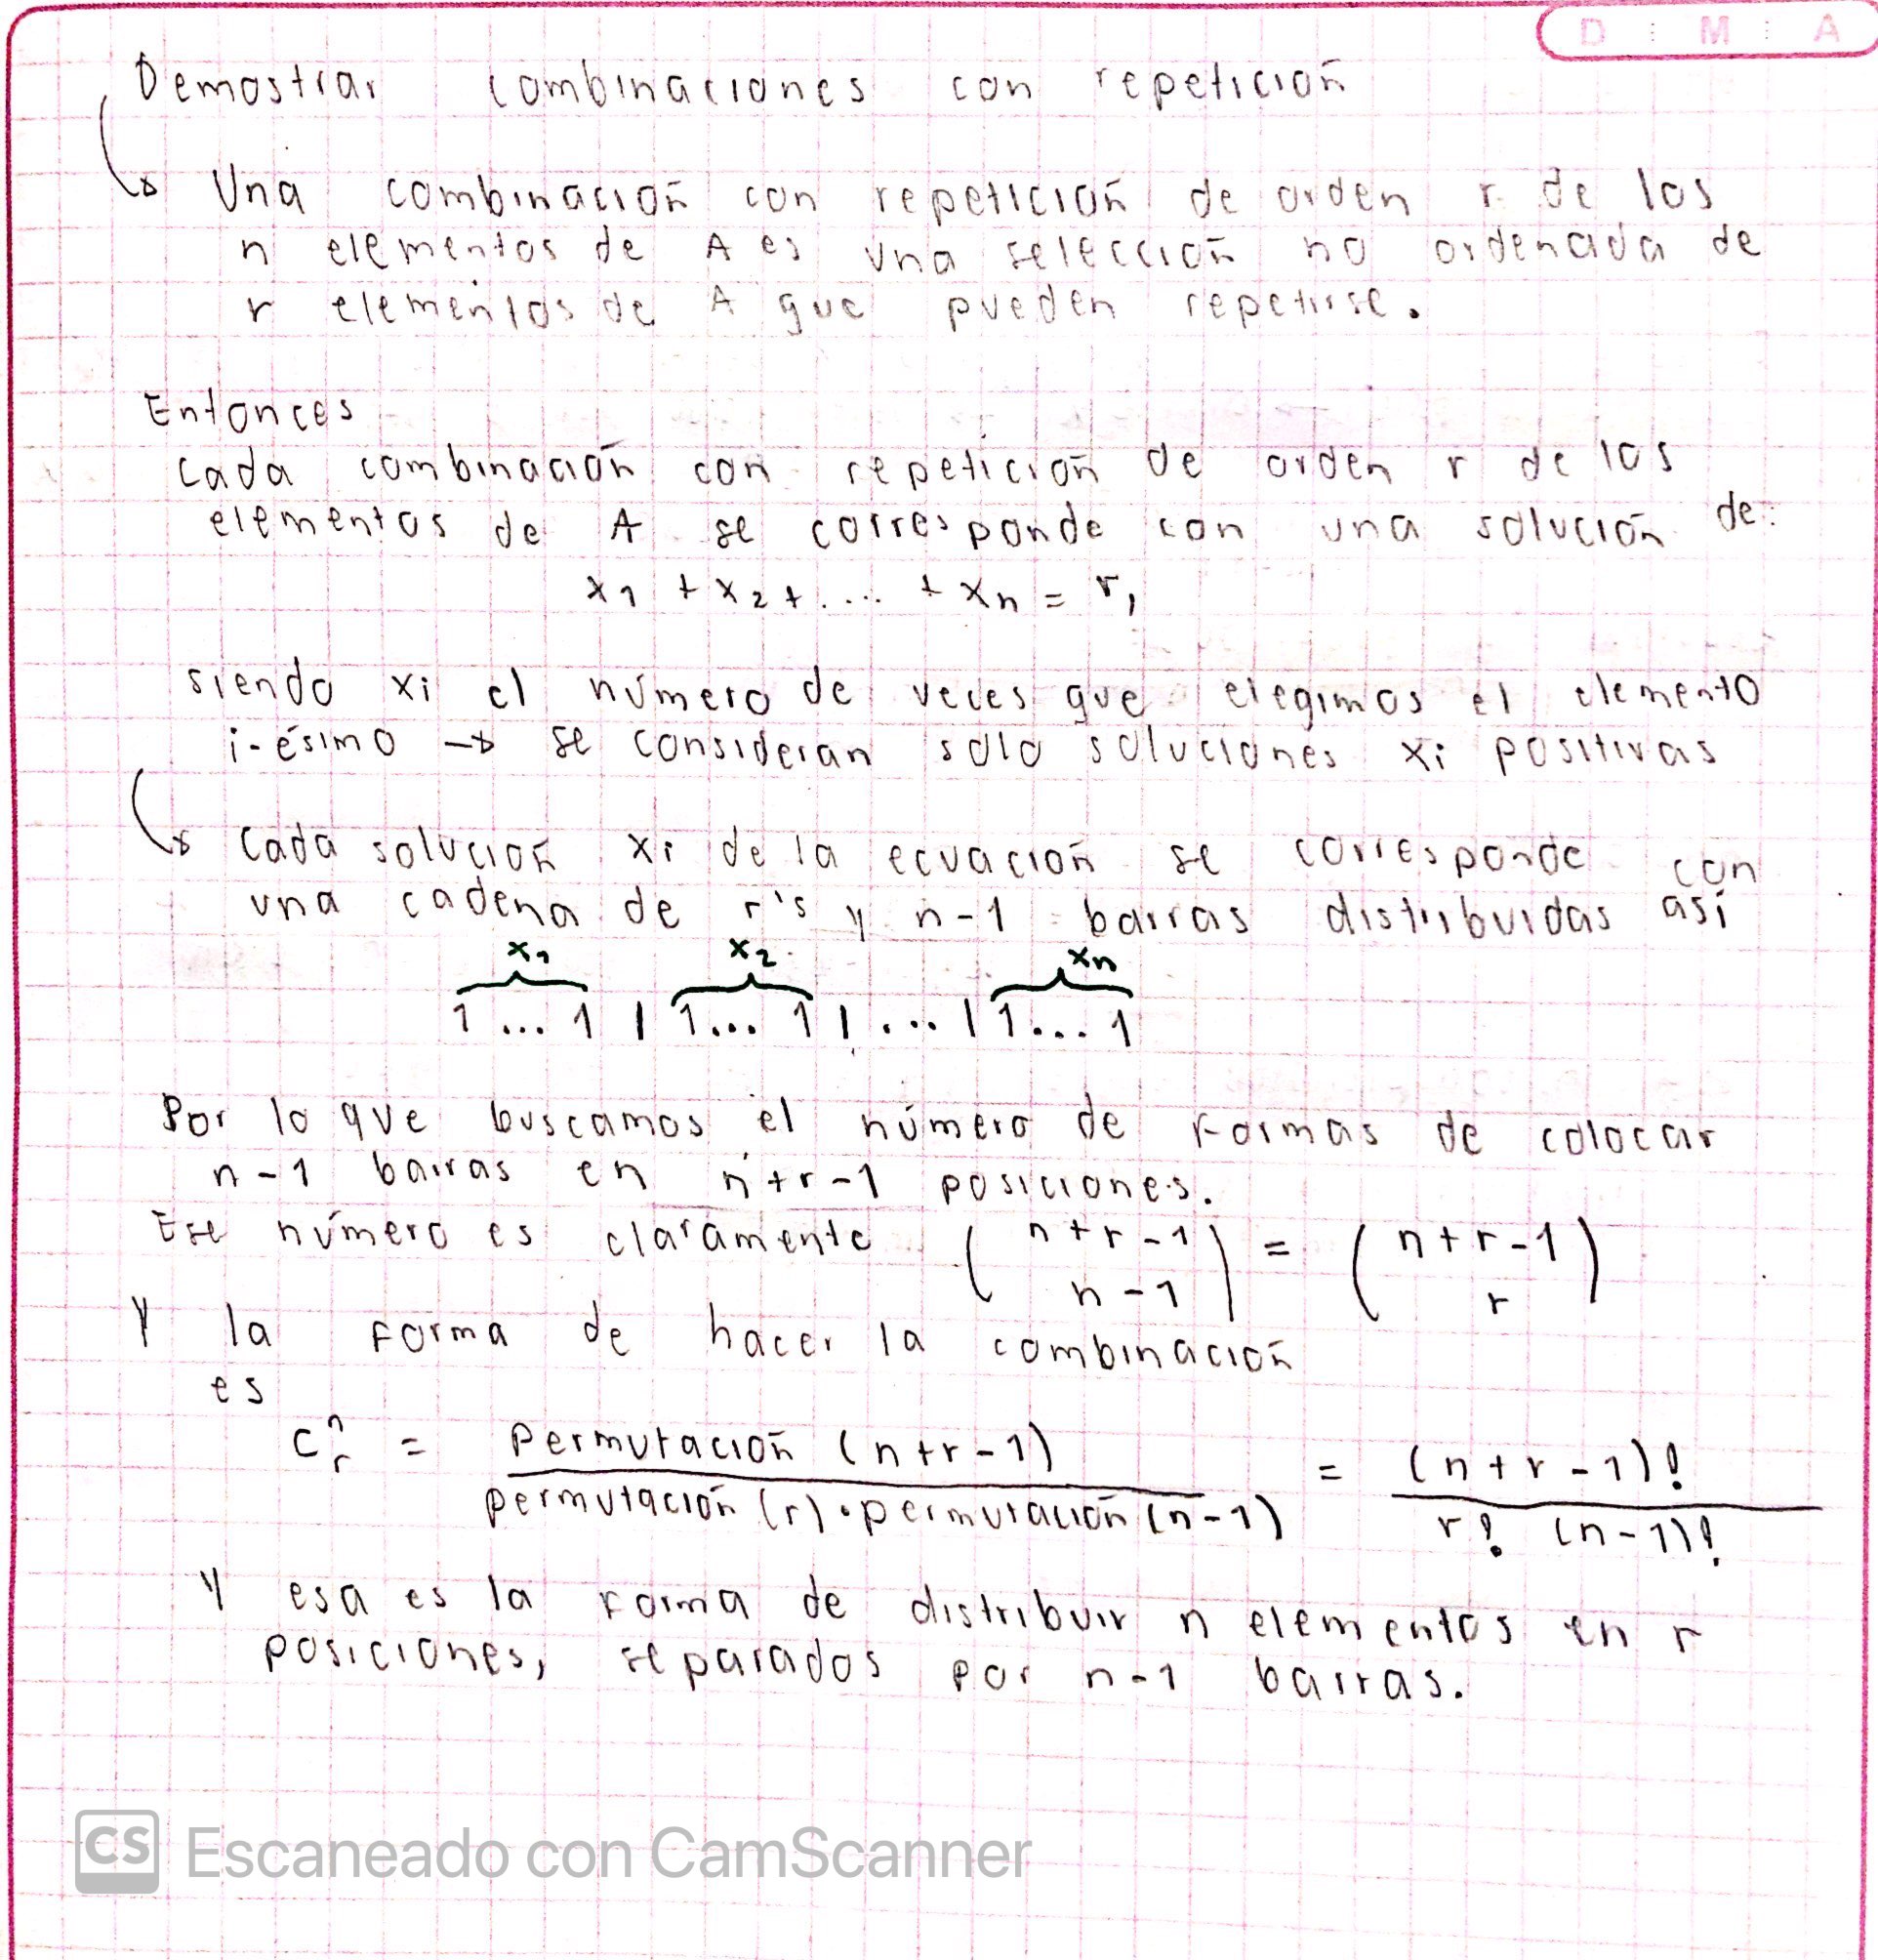 D : M : A
Demostrar combinaciones con repetición
Una combinación con repetición de orden r de los
n elementos de A es una selección no ordenada de
r elementos de A que pueden repetirse.
Entonces
cada combinación con repetición de orden r de los
elementos de A se corresponde con una solución de:
x1 + x2 + .... + xn = r,
siendo xi el número de veces que elegimos el elemento
i-ésimo → se consideran solo soluciones xi positivas
Cada solución xi de la ecuación se corresponde con
una cadena de r's y n-1 barras distribuidas así
x1 x2 xn
1 ... 1 | 1... 1 | ... | 1... 1
Por lo que buscamos el número de formas de colocar
n-1 barras en n+r-1 posiciones.
Ese número es claramente (n+r-1 / n-1) = (n+r-1 / r)
Y la forma de hacer la combinación
es
C^n_r = Permutación (n+r-1) / permutación (r) • permutación (n-1) = (n+r-1)! / r! (n-1)!
Y esa es la forma de distribuir n elementos en r
posiciones, separados por n-1 barras.
CS Escaneado con CamScanner